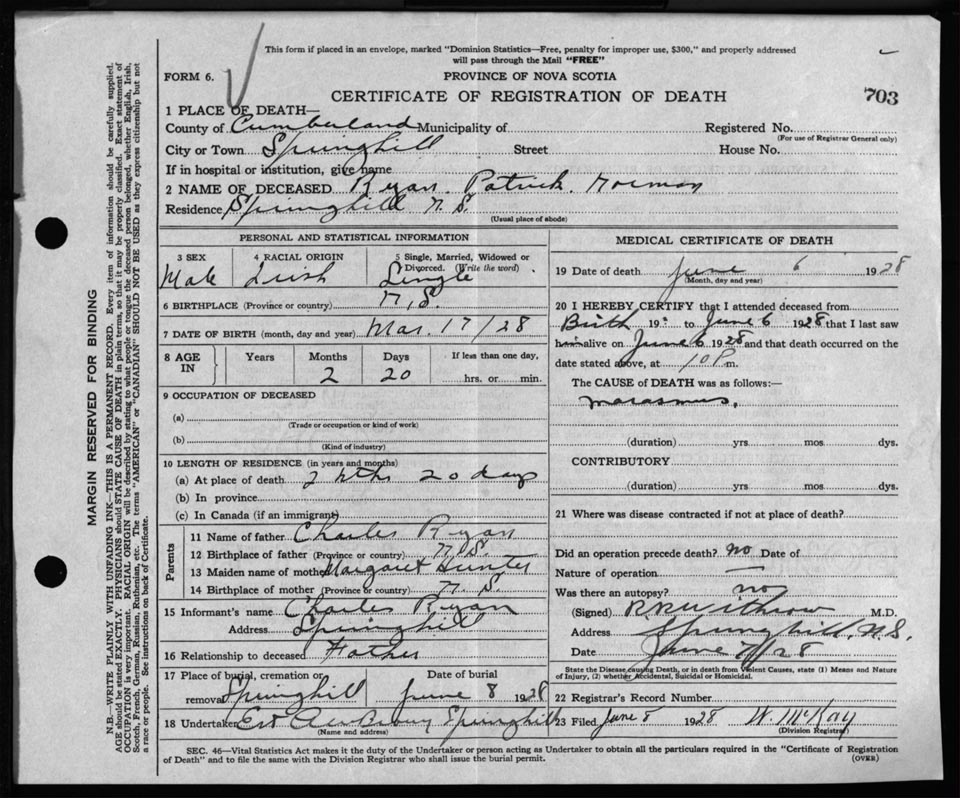 This form if placed in an envelope, marked "Dominion Statistics—Free, penalty for improper use, $300," and properly addressed
will pass through the Mail "FREE"
FORM 6.
PROVINCE OF NOVA SCOTIA
CERTIFICATE OF REGISTRATION OF DEATH
703
1 PLACE OF DEATH—
County of Cumberland Municipality of Registered No.
(For use of Registrar General only)
City or Town Springhill Street House No.
If in hospital or institution, give name
2 NAME OF DECEASED Ryan. Patrick. Norman
Residence Springhill N.S.
(Usual place of abode)
PERSONAL AND STATISTICAL INFORMATION
3 SEX 4 RACIAL ORIGIN 5 Single, Married, Widowed or
Divorced. (Write the word)
Male Irish Single
6 BIRTHPLACE (Province or country) N.S.
7 DATE OF BIRTH (month, day and year) Mar. 17/28
8 AGE IN Years Months Days If less than one day,
2 20 hrs. or min.
9 OCCUPATION OF DECEASED
(a)
(Trade or occupation or kind of work)
(b)
(Kind of industry)
10 LENGTH OF RESIDENCE (in years and months)
(a) At place of death 2 mths 20 days
(b) In province
(c) In Canada (if an immigrant)
Parents
11 Name of father Charles Ryan
12 Birthplace of father (Province or country) N.S.
13 Maiden name of mother Margaret Hunter
14 Birthplace of mother (Province or country) N.S.
15 Informant's name Charles Ryan
Address Springhill
16 Relationship to deceased Father
17 Place of burial, cremation or Date of burial
removal Springhill June 8 1928
18 Undertaker Springhill
(Name and address)
MEDICAL CERTIFICATE OF DEATH
19 Date of death June 6 1928
(Month, day and year)
20 I HEREBY CERTIFY that I attended deceased from
Birth 19 to June 6 1928 that I last saw
him alive on June 6 1928 and that death occurred on the
date stated above, at 10 P m.
The CAUSE of DEATH was as follows:—
Marasmus.
(duration) yrs. mos. dys.
CONTRIBUTORY
(duration) yrs. mos. dys.
21 Where was disease contracted if not at place of death?
Did an operation precede death? no Date of
Nature of operation —
Was there an autopsy? no
(Signed) Withrow M.D.
Address Springhill, N.S.
Date June 7/28
State the Disease causing Death, or in death from Violent Causes, state (1) Means and Nature
of Injury, (2) whether Accidental, Suicidal or Homicidal.
22 Registrar's Record Number
23 Filed June 8 1928 W. McKay
(Division Registrar)
SEC. 46—Vital Statistics Act makes it the duty of the Undertaker or person acting as Undertaker to obtain all the particulars required in the "Certificate of Registration
of Death" and to file the same with the Division Registrar who shall issue the burial permit.
(OVER)
MARGIN RESERVED FOR BINDING
N.B.—WRITE PLAINLY WITH UNFADING INK—THIS IS A PERMANENT RECORD. Every item of information should be carefully supplied.
AGE should be stated EXACTLY. PHYSICIANS should STATE CAUSE OF DEATH in plain terms, so that it may be properly classified. Exact statement of
OCCUPATION is very important. RACIAL ORIGIN will be described by stating to what people or tongue the deceased person belonged, whether English, Irish,
Scotch, French, German, Russian, Ruthenian, etc. The terms "AMERICAN" or "CANADIAN" SHOULD NOT BE USED as they express citizenship but not
a race or people. See instructions on back of Certificate.